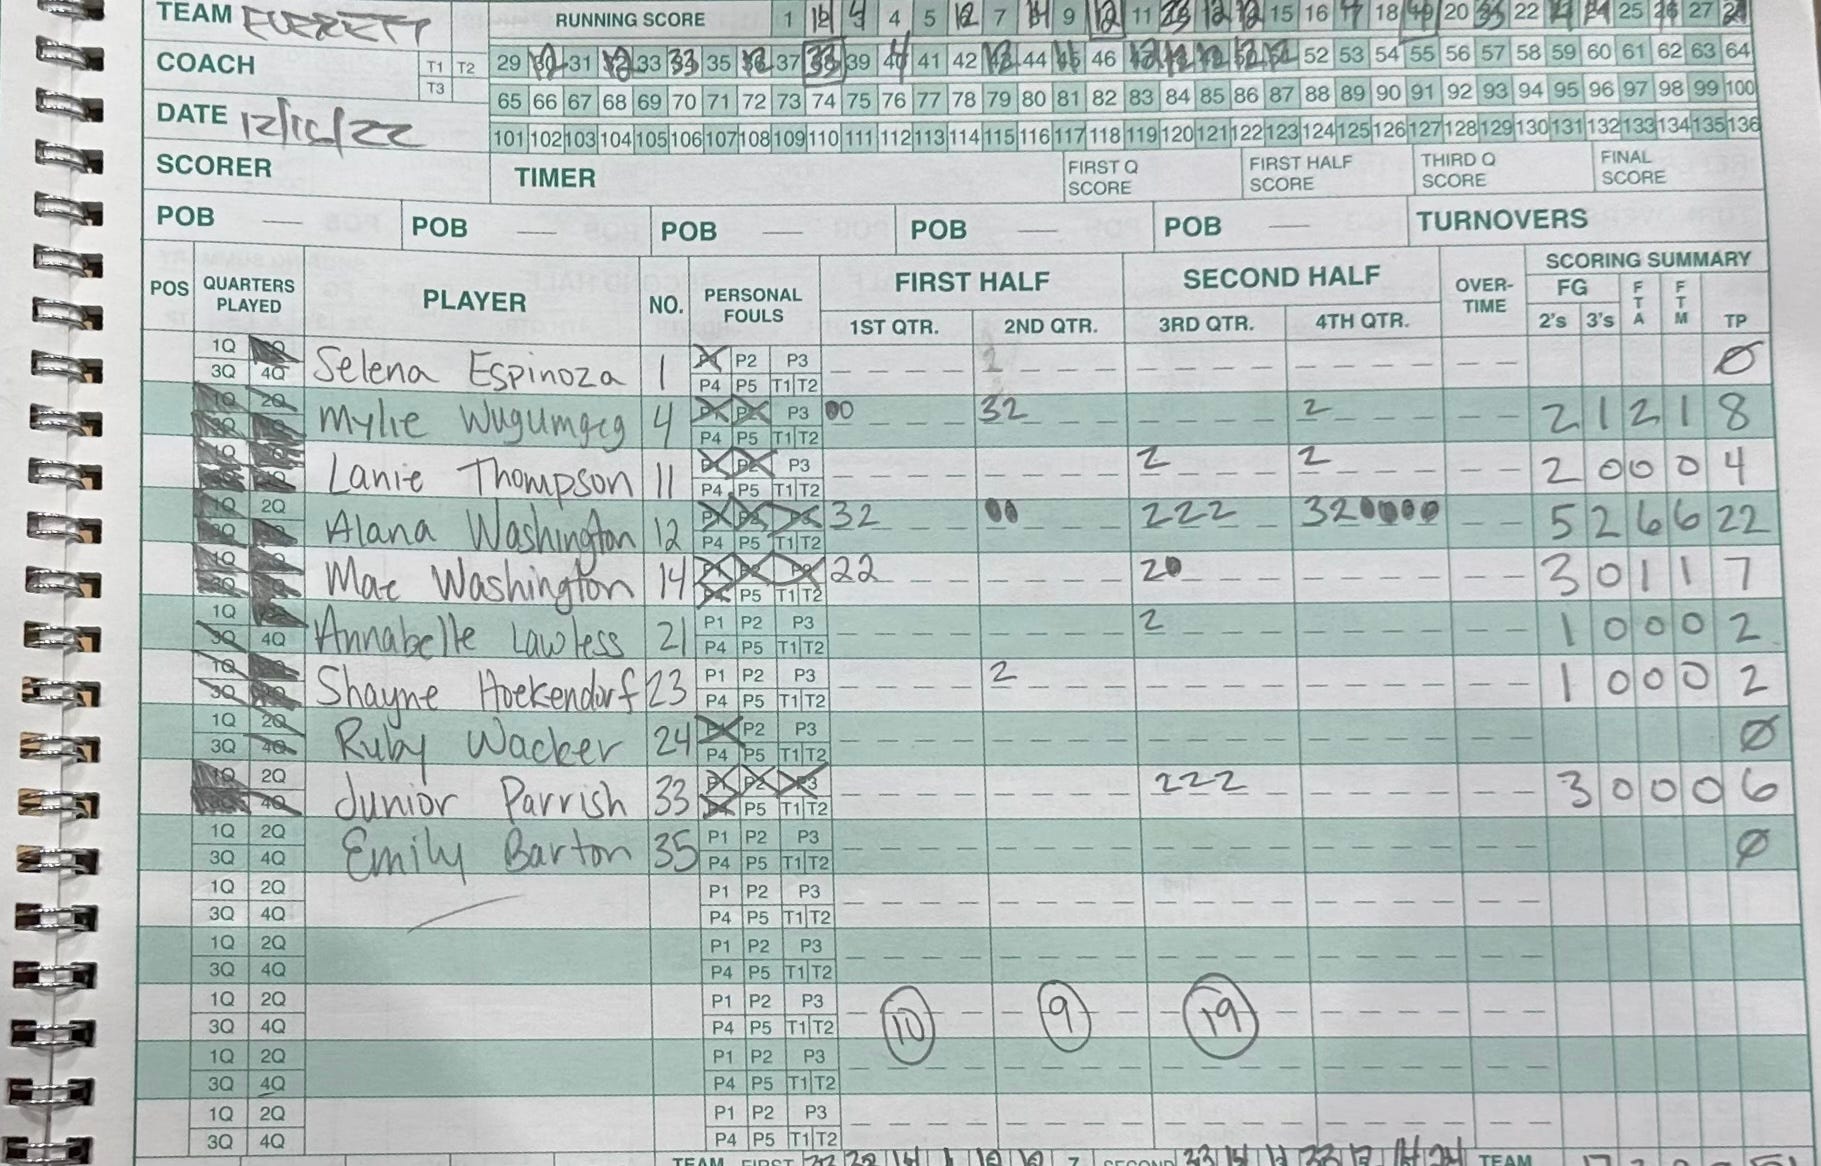 TEAM EVERETT
RUNNING SCORE 1 12 4 4 5 12 7 14 9 12 11 23 12 12 15 16 18 20 33 22 25 27
COACH T1 T2 T3
29 31 33 33 35 12 37 33 39 4 41 42 12 44 46 12 12 12 12 12 52 53 54 55 56 57 58 59 60 61 62 63 64
65 66 67 68 69 70 71 72 73 74 75 76 77 78 79 80 81 82 83 84 85 86 87 88 89 90 91 92 93 94 95 96 97 98 99 100
DATE 12/15/22
101 102 103 104 105 106 107 108 109 110 111 112 113 114 115 116 117 118 119 120 121 122 123 124 125 126 127 128 129 130 131 132 133 134 135 136
SCORER TIMER FIRST Q SCORE FIRST HALF SCORE THIRD Q SCORE FINAL SCORE
POB — POB — POB — POB — POB — TURNOVERS
POS QUARTERS PLAYED PLAYER NO. PERSONAL FOULS FIRST HALF SECOND HALF OVER-TIME SCORING SUMMARY
1ST QTR. 2ND QTR. 3RD QTR. 4TH QTR. FG 2's 3's FTA FTM TP
1Q P2 P3
3Q 4Q Selena Espinoza 1 P4 P5 T1 T2 0
2Q P3
Mylie Wugumgeg 4 P4 P5 T1 T2 00 32 2 2 1 2 1 8
P3
Lanie Thompson 11 P4 P5 T1 T2 2 2 2 0 0 0 4
1Q 2Q
Alana Washington 12 P4 P5 T1 T2 32 00 222 320000 5 2 6 6 22
1Q
Mac Washington 14 P5 T1 T2 22 20 3 0 1 1 7
1Q P1 P2 P3
3Q 4Q Annabelle Lawless 21 P4 P5 T1 T2 2 1 0 0 0 2
1Q P1 P2 P3
3Q Shayne Hoekendorf 23 P4 P5 T1 T2 2 1 0 0 0 2
1Q 2Q P2 P3
3Q 4Q Ruby Wacker 24 P4 P5 T1 T2 0
2Q P3
4Q Junior Parrish 33 P5 T1 T2 222 3 0 0 0 6
1Q 2Q P1 P2 P3
3Q 4Q Emily Barton 35 P4 P5 T1 T2 0
1Q 2Q P1 P2 P3
3Q 4Q P4 P5 T1 T2
1Q 2Q P1 P2 P3
3Q 4Q P4 P5 T1 T2
1Q 2Q P1 P2 P3
3Q 4Q P4 P5 T1 T2 10 9 19
1Q 2Q P1 P2 P3
3Q 4Q P4 P5 T1 T2
1Q 2Q P1 P2 P3
3Q 4Q P4 P5 T1 T2
TEAM FIRST 7 SECOND TEAM